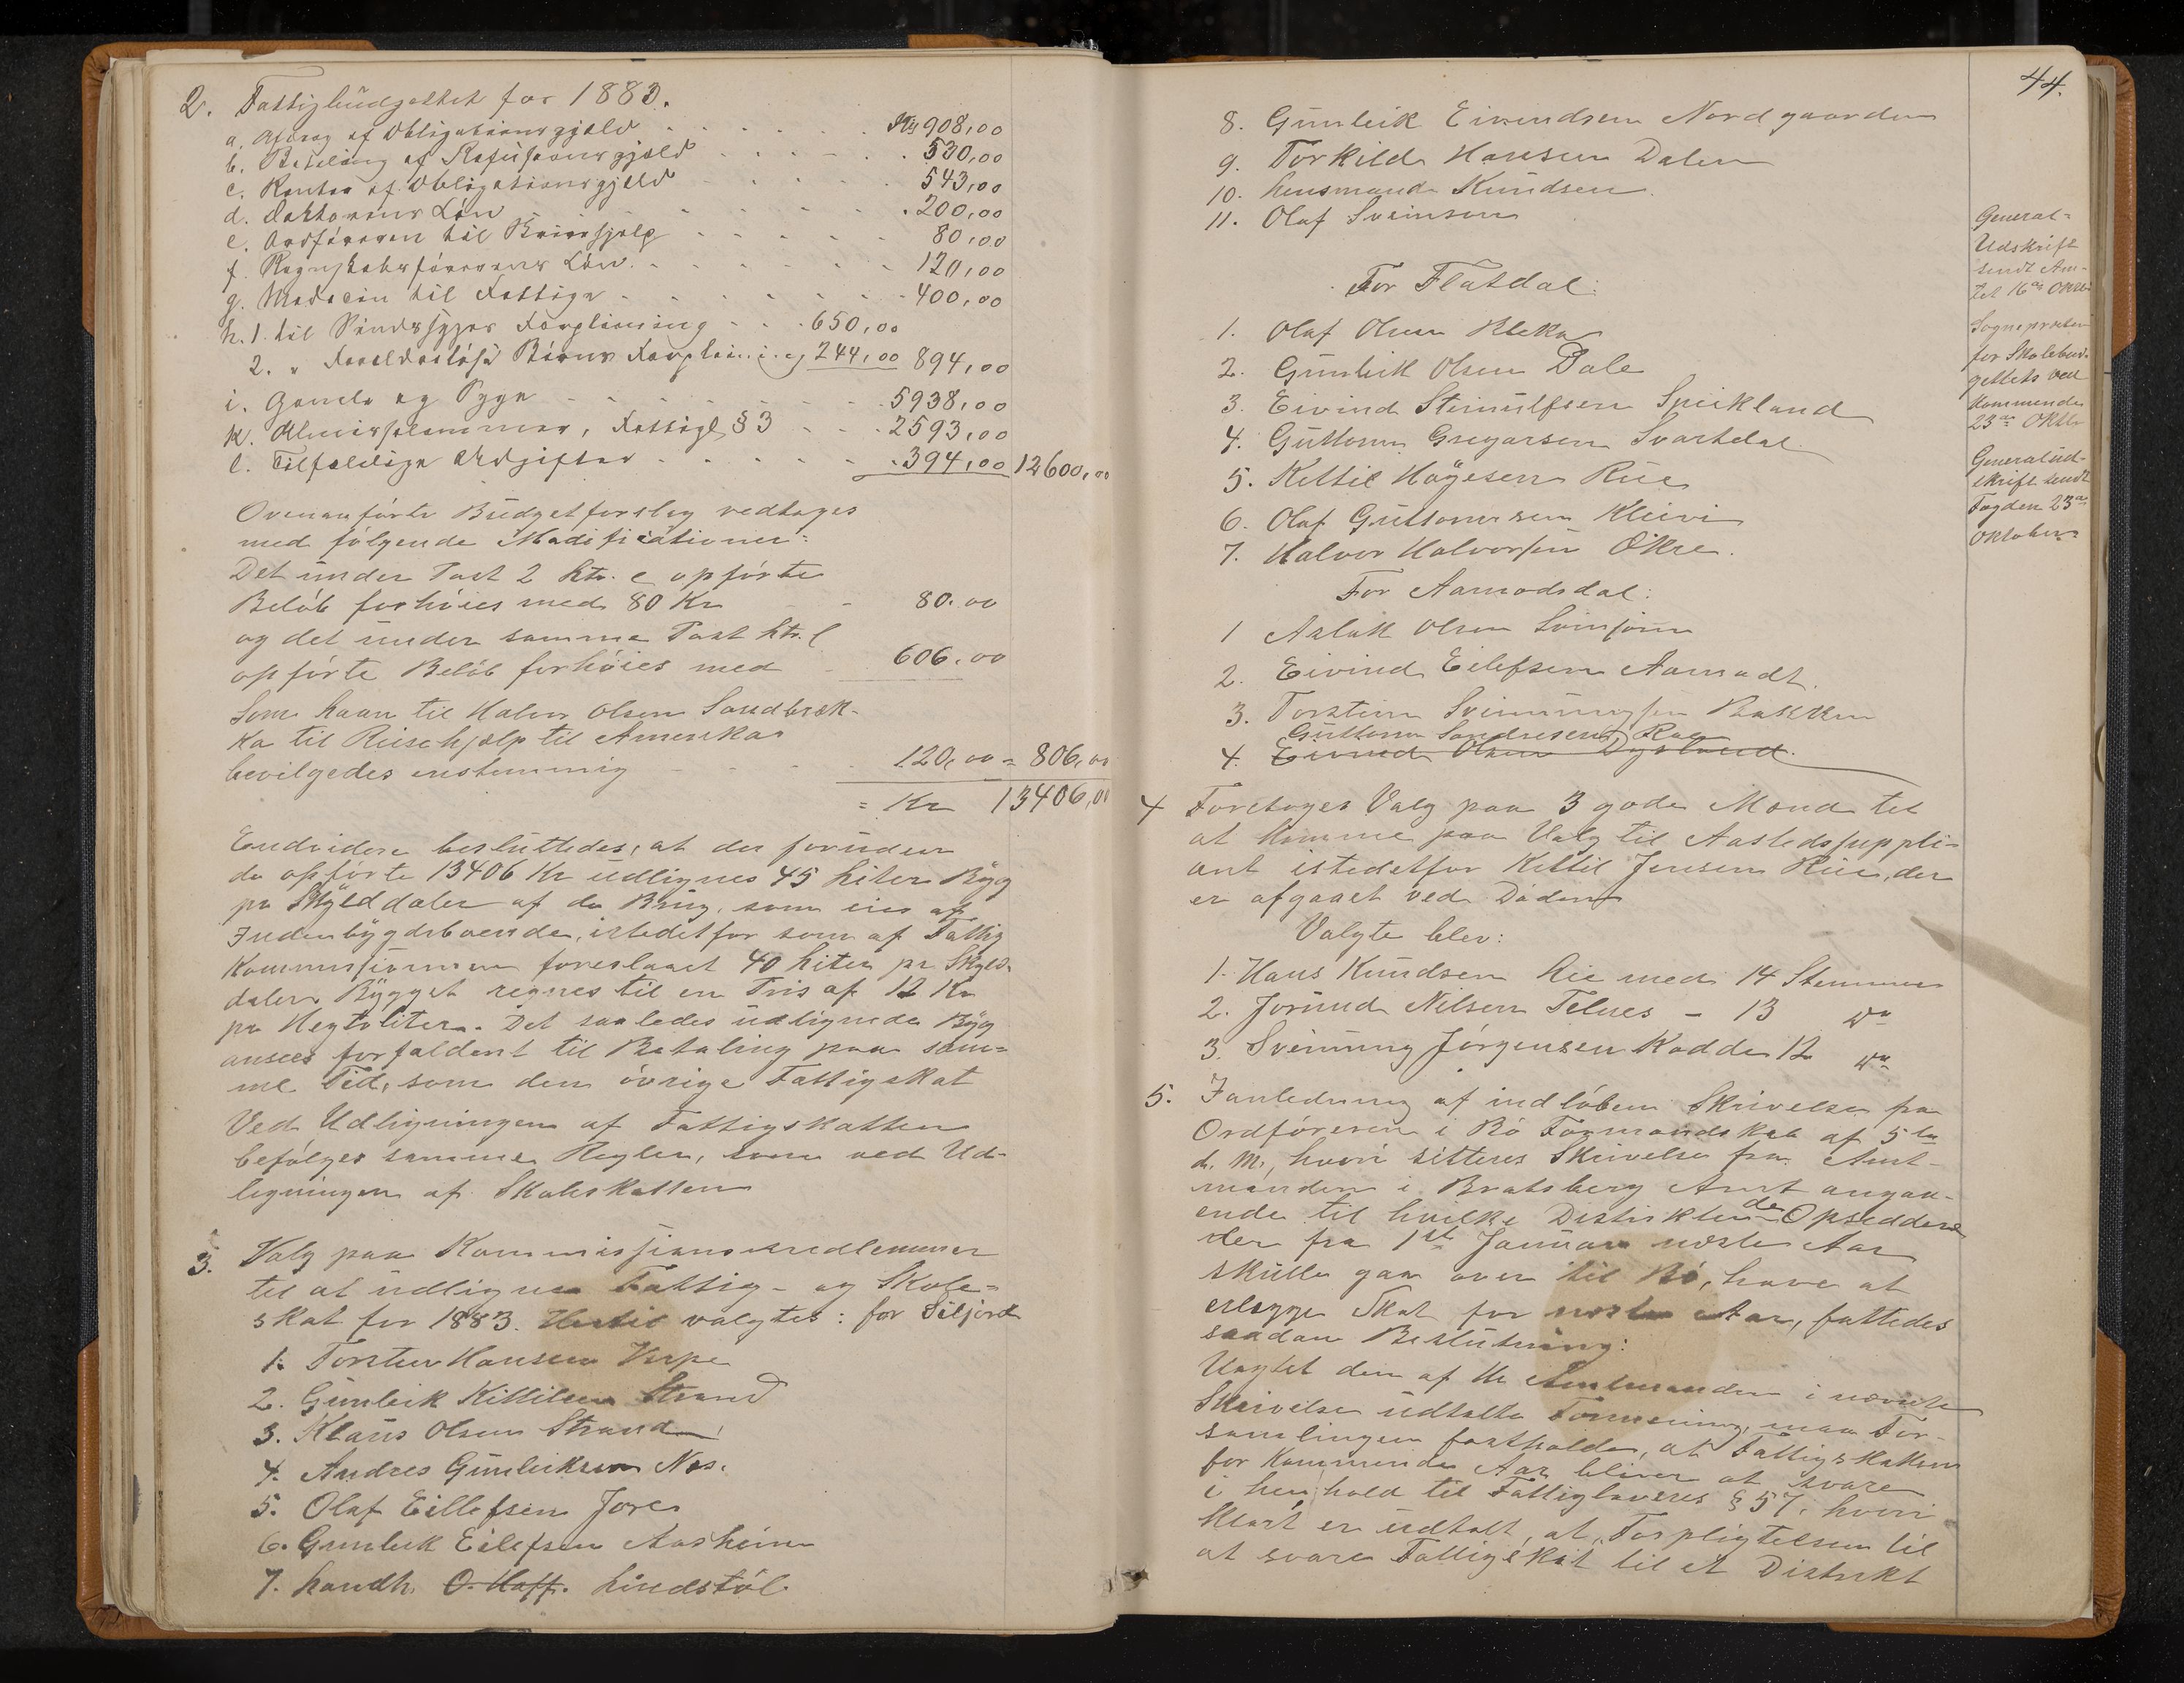 2. Fattigbudgettet for 1883.
a. Afdrag af Obligationsgjeld Kr 908,00
b. Betaling af Refusionsgjeld 530,00
c. Renter af Obligationsgjeld 543,00
d. Doktorens Løn 200,00
e. Ordføreren til Skrivehjelp 80,00
f. Regnskabsførerens Løn 120,00
g. Medecin til Fattige 400,00
h. 1. til Sindssyges Forpleining 650,00
2. " Forældreløse Børns Forpleining 244,00 894,00
i. Gamle og Syge 5938,00
k. Almisselemmer, Fattigl. § 3 2593,00
l. Tilfældige Udgifter 394,00 12600,00
Ovenanførte Budgetforslag vedtages
med følgende Modificationer:
Det under Post 2 Ltr. e opførte
Beløb forhøies med 80 Kr 80.00
og det under samme Post Ltr. l
opførte Beløb forhøies med 606.00
Som Laan til Halvor Olsen Sandbræk-
ka til Reisehjælp til Amerika
bevilgedes enstemmig 120,00 = 806,00
= Kr 13406,00
Endvidere besluttedes, at der foruden
de opførte 13406 Kr udlignes 45 Liter Byg
pr Skylddaler af de Brug, som eies af
Indenbygdsboende, istedetfor som af Fattig
Kommissionen foreslaaet 40 Liter pr Skyld-
daler. Bygget regnes til en Pris af 12 Kr
pr Hegtoliter. Det saaledes udlignede Byg
ansees forfaldent til Betaling paa sam-
me Tid, som den øvrige Fattigskat
Ved Udligningen af Fattigskatten
befølges samme Regler, som ved Ud-
ligningen af Skoleskatten
3. Valg paa Kommissionsmedlemmer
til at udligne Fattig- og Skole-
skat for 1883. Hertil valgtes: for Siljord
1. Torsten Hansen Verpe
2. Gunleik Kittilsen Strand
3. Klaus Olsen Strand
4. Andres Gunleiksen Nes.
5. Olaf Eillefsen Jore
6. Gunleik Eilefsen Aasheim
7. Landh. O. Hoff. Lindstøl
44.
8. Gunleik Eivendsen Nordgaarden
9. Torkild Hansen Dalen
10. Lensmand Knudsen
11. Olaf Sveinsen
For Flatdal:
1. Olaf Olsen Bleka
2. Gunleik Olsen Dale
3. Eivind Steinulfsen Spirkland
4. Guttorm Gregarsen Svartdal
5. Kettil Høgesen Rue
6. Olaf Guttormsen Kleivi
7. Halvor Halvorsen Økre.
For Aamodsdal:
1 Aslak Olsen
2. Eivind Eilefsen Aamodt.
3. Torstein Bakken
Guttorm Sondresen
4. Eivind Olsen Dysland
4 Foretages Valg paa 3 gode Mænd til
at komme paa Valg til Aastedssuppli-
ant istedetfor Kittil Jensen Rue, der
er afgaaet ved Døden
Valgte blev:
1. Hans Knudsen Lie med 14 Stemmer
2. Jorund Nilsen Telnes - 13 do
3. Sveinung Jørgensen Kodde 12 do
5. I anledning af indløben Skrivelse fra
Ordføreren i Bø Formandskab af 5te
d. M., hvori sitteres Skrivelse fra Amt-
manden i Bratsberg Amt angaa-
ende til hvilke Distrikter de Opsiddere
der fra 1ste Januar næste Aar
skulle gaa over til Bø, have at
erlægge Skat for næste Aar, fattedes
saadan Beslutning:
Uagtet den af Hr Amtmanden i nævnte
Skrivelse udtalte Formening, maa For-
samlingen fastholde, at Fattigskatten
for kommende Aar bliver at svare
i henhold til Fattiglovens § 57, hvori
klart er udtalt, at "Forpligtelsen til
at svare Fattigskat til et Distrikt
General-
Udskrift
sendt Am-
tet 16de Oktbr
Sognepresten
for Skolebud-
gettets ved-
kommende
23de Oktbr
Generalud-
skrift sendt
Fogden 23de
Oktober